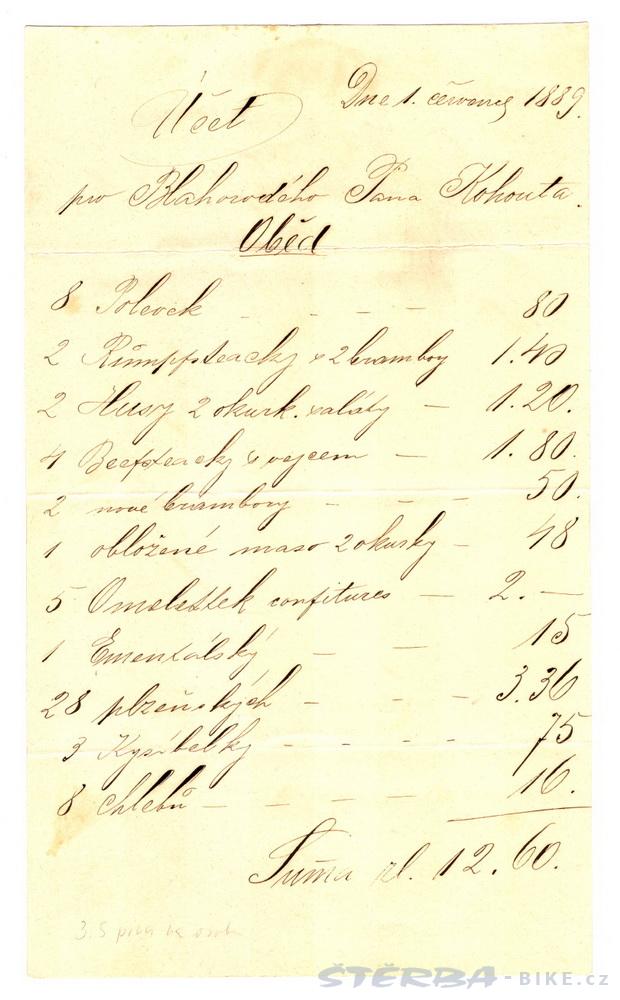 Dne 1. července 1889.
Účet
pro Blahorodého Pana Kohouta.
Oběd
8 Polevek - - - - 80
2 Rumpfsteacky s 2 brambory 1.40
2 Husy 2 okurk. saláty - 1.20.
4 Beefsteacky s vejcem - 1.80.
2 nové brambory - - - 50.
1 obložené maso 2 okurky - 48
5 Omelettek confitures - 2.-
1 Ementálský - - - 15
28 plzeňských - - - 3.36
3 Kysibelky - - - - 75
8 chlebů - - - - 16.
Suma zl. 12.60.
3.5 piva na osob
ŠTĚRBA-BIKE.cz